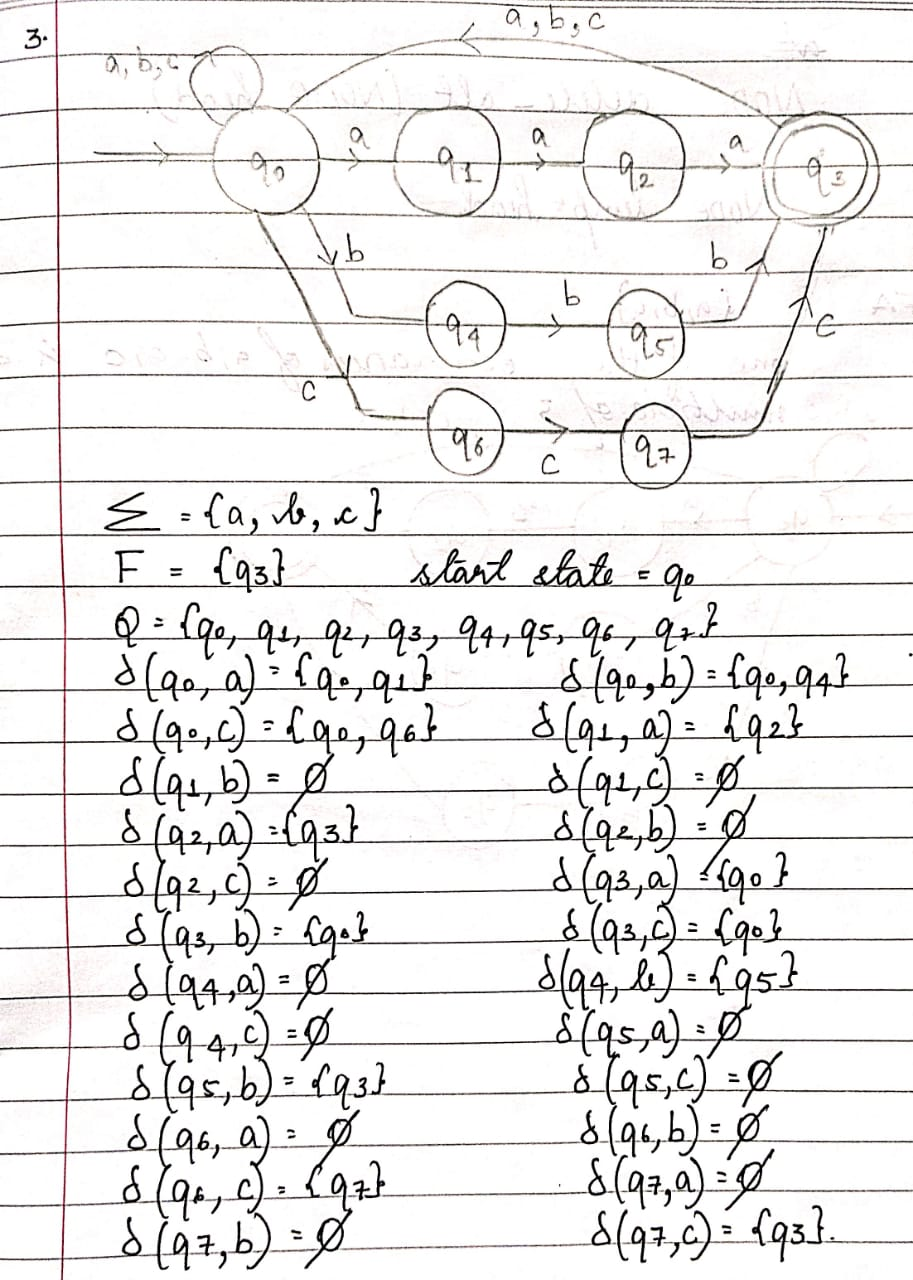 3.
a, b, c
a, b, c
q0 a q1 a q2 a q3
b b
b
q4 q5
c
c
q6 q7
c
Σ = {a, b, c}
F = {q3} start state = q0
Q = {q0, q1, q2, q3, q4, q5, q6, q7}
δ(q0, a) = {q0, q1} δ(q0, b) = {q0, q4}
δ(q0, c) = {q0, q6} δ(q1, a) = {q2}
δ(q1, b) = ∅ δ(q1, c) = ∅
δ(q2, a) = {q3} δ(q2, b) = ∅
δ(q2, c) = ∅ δ(q3, a) = {q0}
δ(q3, b) = {q0} δ(q3, c) = {q0}
δ(q4, a) = ∅ δ(q4, b) = {q5}
δ(q4, c) = ∅ δ(q5, a) = ∅
δ(q5, b) = {q3} δ(q5, c) = ∅
δ(q6, a) = ∅ δ(q6, b) = ∅
δ(q6, c) = {q7} δ(q7, a) = ∅
δ(q7, b) = ∅ δ(q7, c) = {q3}.